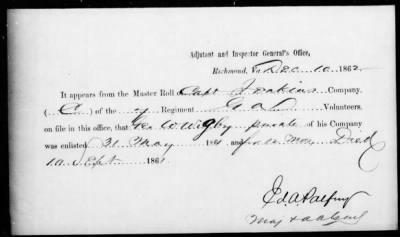 Adjutant and Inspector General's Office,
Richmond, Va. Dec 10 1862
It appears from the Muster Roll of Capt Jenkins Company,
( C ) of the 7 Regiment Ga Volunteers,
on file in this office, that Geo W Wigby private of his Company
was enlisted 31 May 1861 and Died
in Sept 1861
Ed. A. Palfrey
Maj & A A Genl